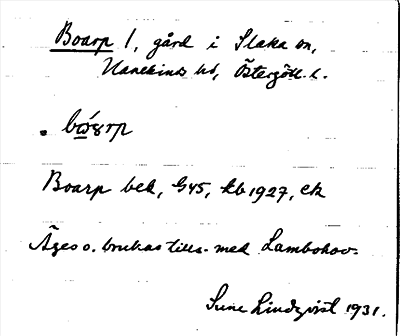 Boarp 1, gård i Slaka sn,
Hanekinds hd, Östergötl. l.
bǫ́ɤrp
Boarp bek, G45, kb 1927, ek
Äges o. brukas tills. med Lambohov.
Sune Lindqvist 1931.